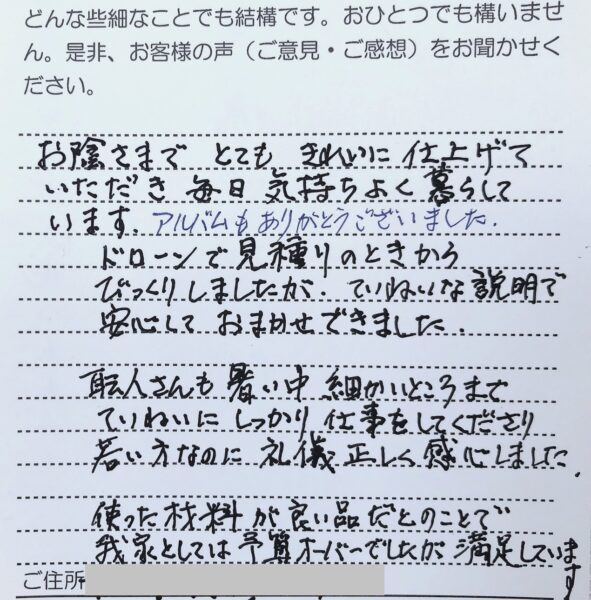 どんな些細なことでも結構です。おひとつでも構いませ
ん。是非、お客様の声（ご意見・ご感想）をお聞かせく
ださい。
お陰さまで とても きれいに 仕上げて
いただき 毎日 気持ちよく 暮らして
います. アルバムもありがとうございました.
ドローンで見種りのときから
びっくりしましたが. ていねいな説明で
安心して おまかせできました.
職人さんも 暑い中 細かいところまで
ていねいに しっかり 仕事をしてくださり
若い方なのに 礼儀 正しく 感心しました.
使った材料が良い品だとのことで
我家としては 予算オーバーでしたが 満足しています
ご住所